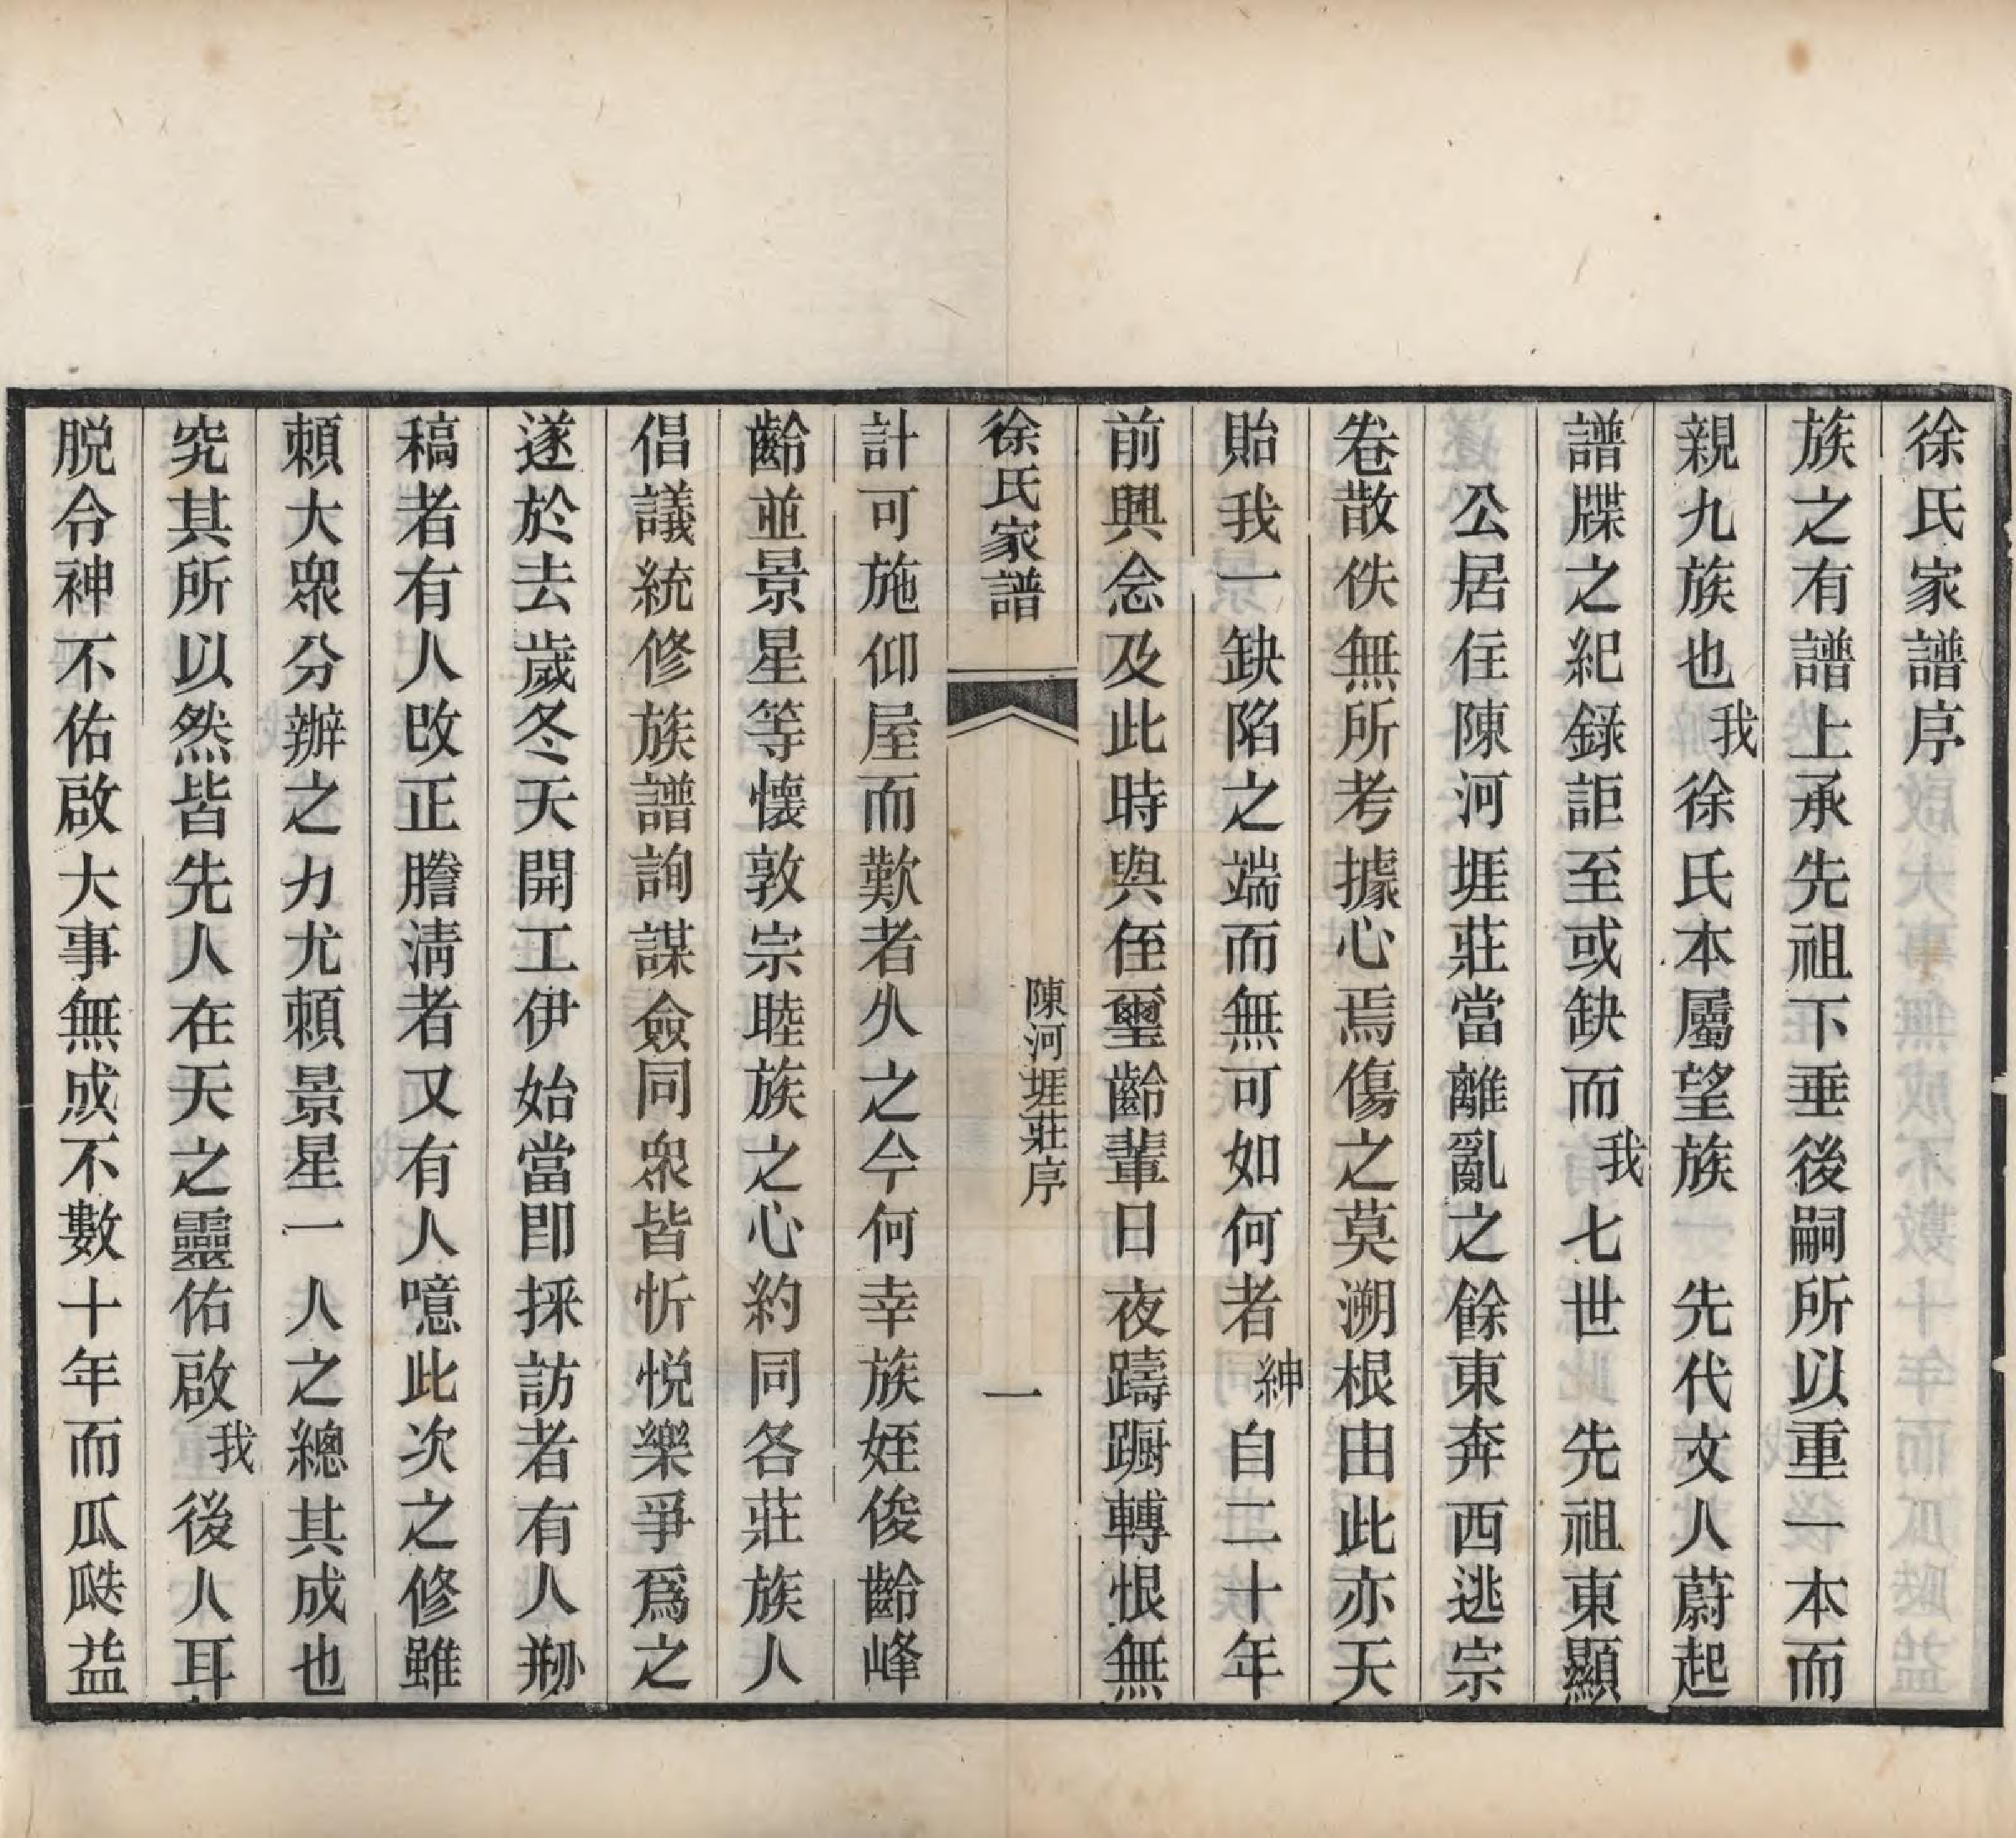 徐氏家譜序
族之有譜上承先祖下垂後嗣所以重一本而
親九族也我徐氏本屬望族先代文人蔚起
譜牒之紀錄詎至或缺而我七世先祖東顯
公居住陳河堐莊當離亂之餘東奔西逃宗
卷散佚無所考據心焉傷之莫溯根由此亦天
貽我一缺陷之端而無可如何者紳自二十年
前興念及此時與侄璽齡輩日夜躊躕轉恨無
徐氏家譜
陳河堐莊序
一
計可施仰屋而歎者久之今何幸族姪俊齡峰
齡並景星等懷敦宗睦族之心約同各莊族人
倡議統修族譜詢謀僉同衆皆忻悅樂爭爲之
遂於去歲冬天開工伊始當即採訪者有人刱
稿者有人改正謄淸者又有人噫此次之修雖
賴大衆分辦之力尤賴景星一人之總其成也
究其所以然皆先人在天之靈佑啟我後人耳
脱令神不佑啟大事無成不數十年而瓜瓞益